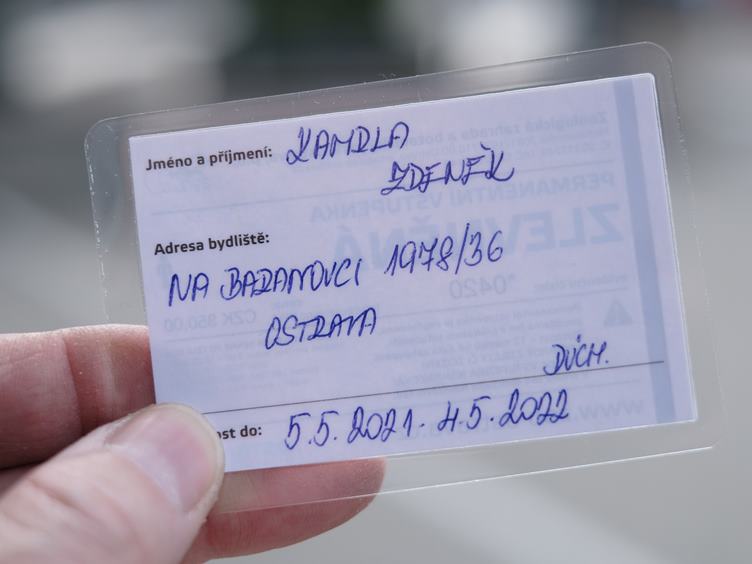 Jméno a příjmení: KAMDLA
ZDENĚK
Adresa bydliště:
NA BARANOVCI 1978/36
OSTRAVA
DŮCH.
ost do: 5.5.2021-4.5.2022
PERMANENTNÍ VSTUPENKA
ZLEVNĚNÁ
*0420
CZK 350,00